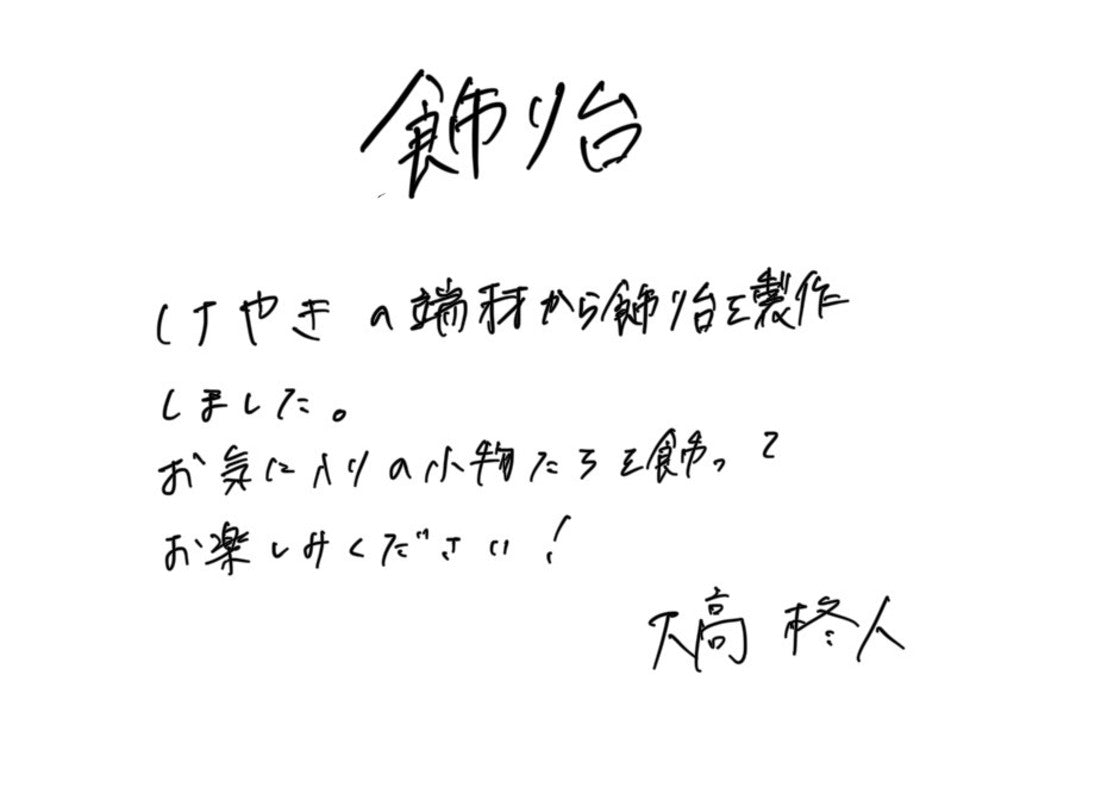 飾り台
けやきの端材から飾り台を製作
しました。
お気に入りの小物たちを飾って
お楽しみください！
大高 柊人